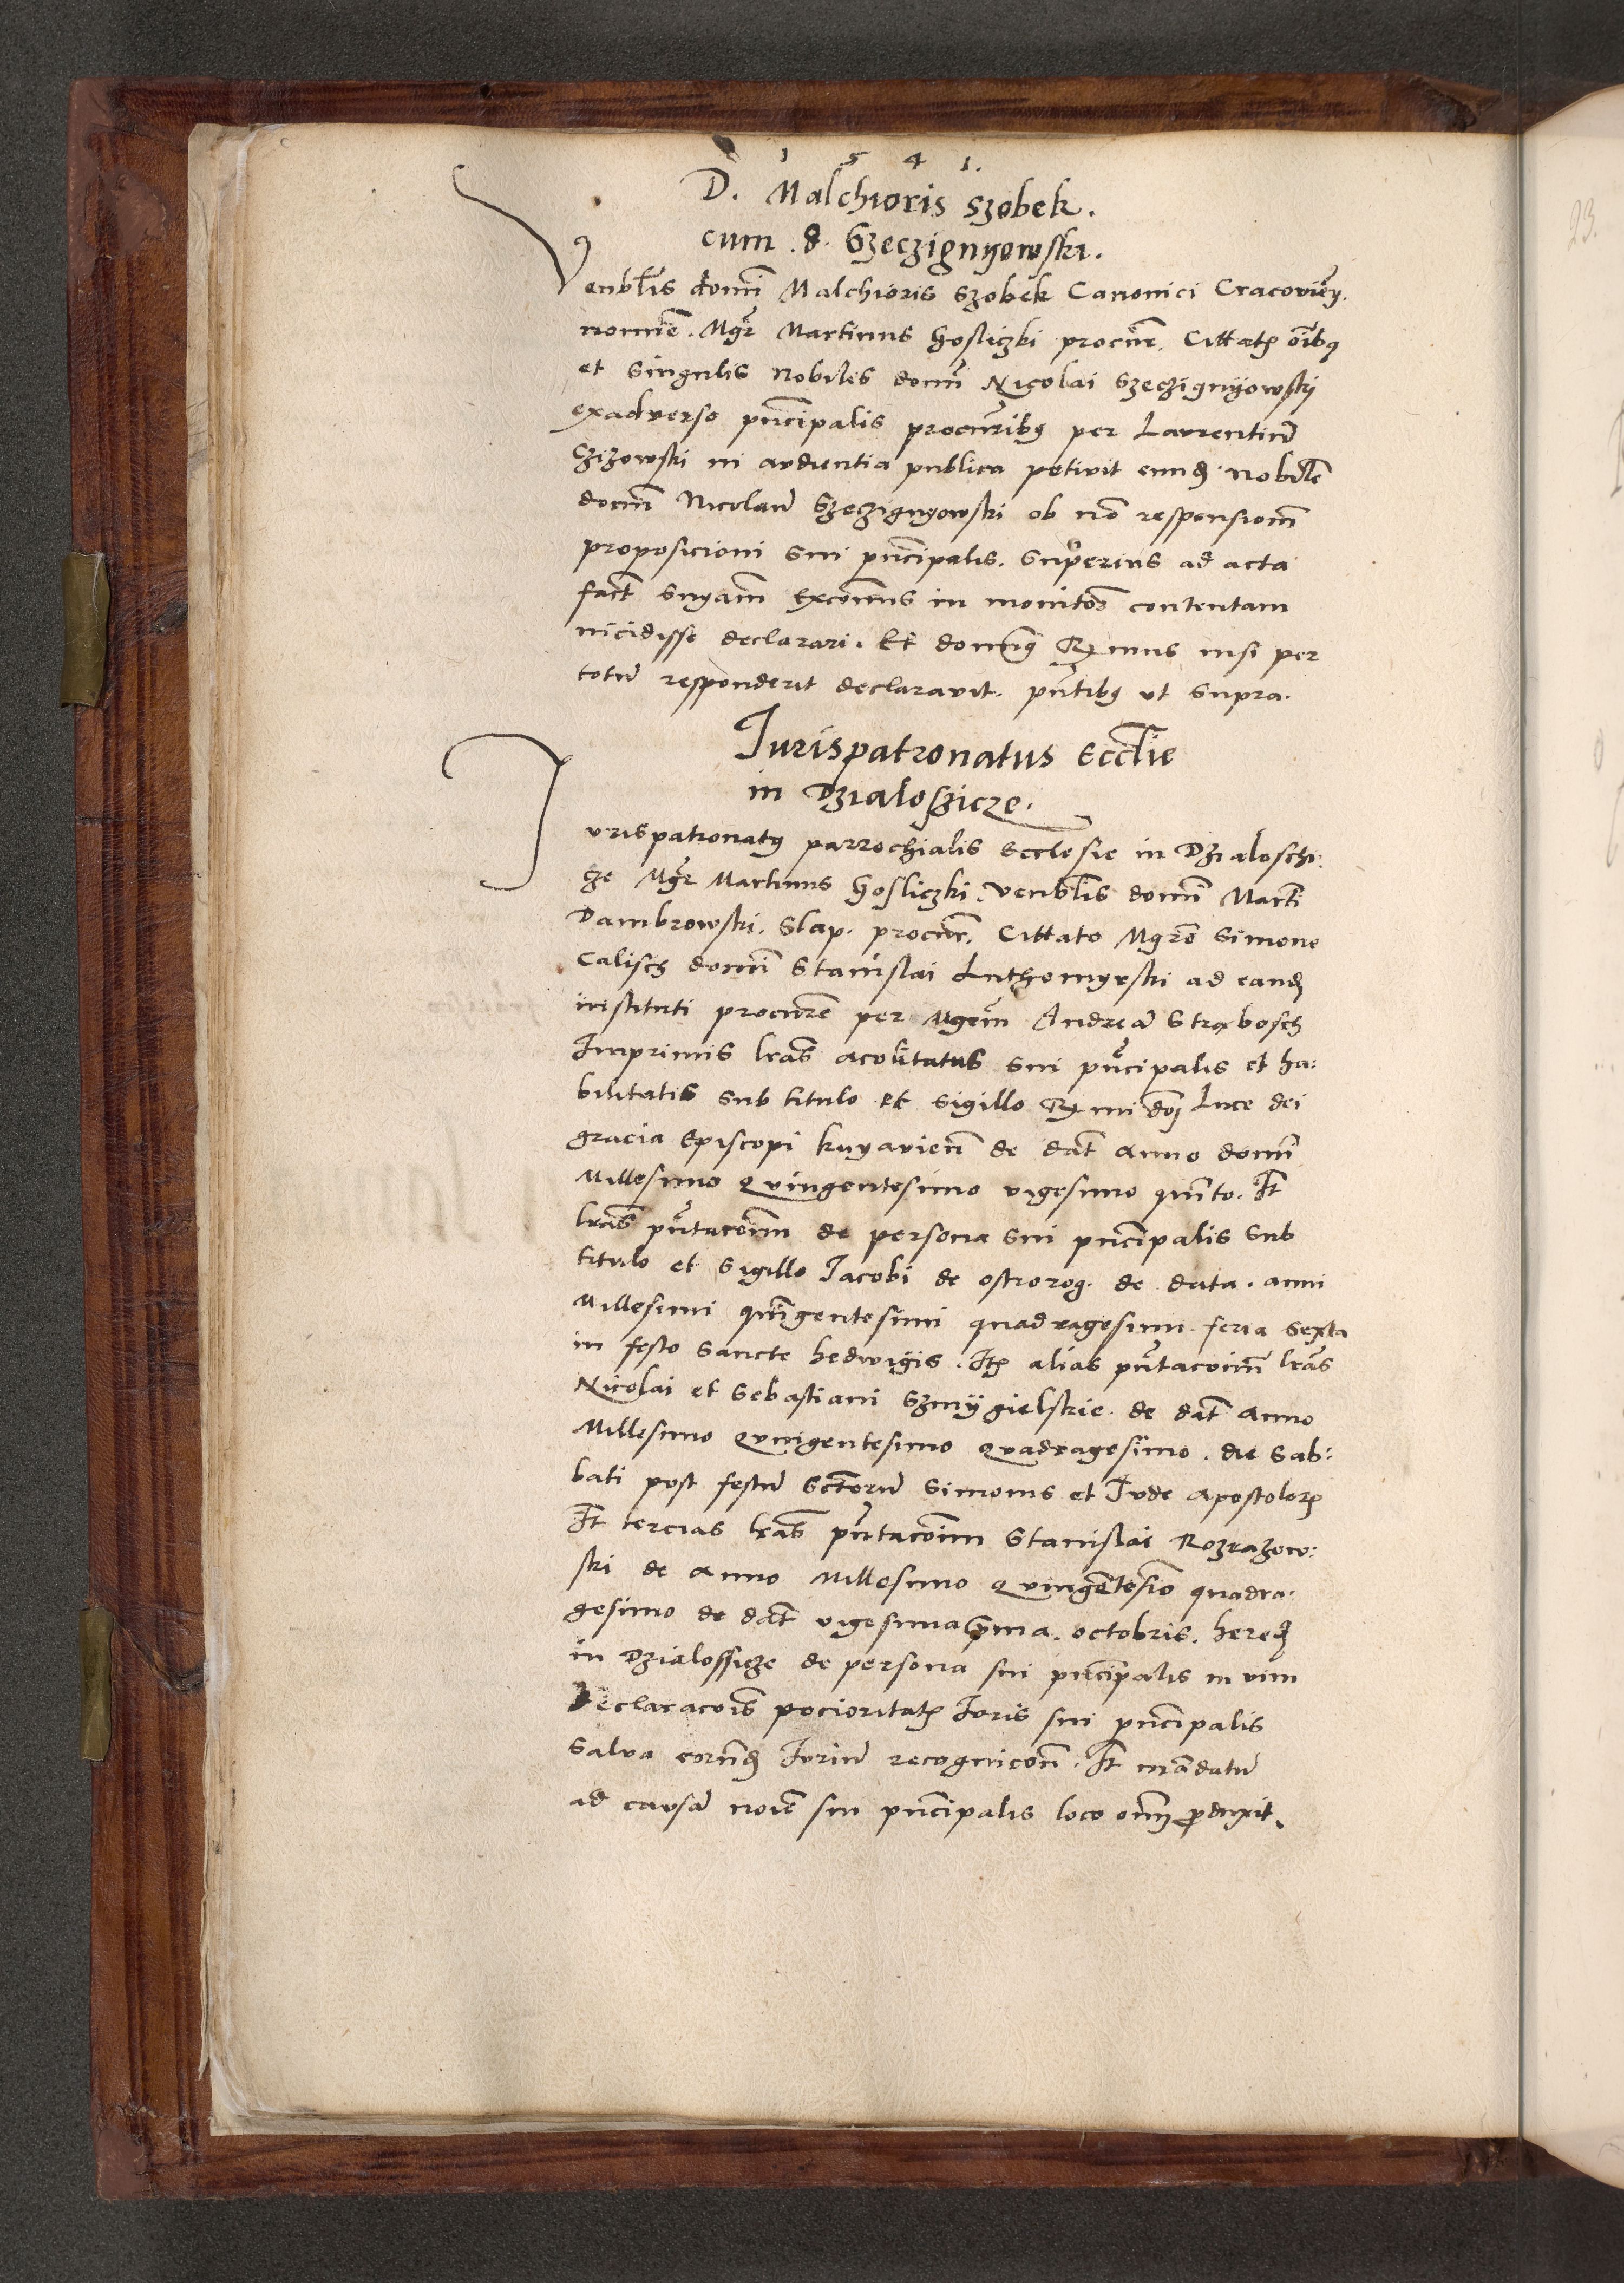 1 5 4 1.
D. Malchioris Szobek.
cum. d. Szeczignyowski.
Venblis domi Malchioris Szobek Canonici Cracovień.
nomie. Mgr Martinus Gosliczki procur. Cittatis oibus
et singulis nobilis domi Nicolai Szeczignyowski
exadverso pncipalis procuribus per Laurentiu
Czizowski in audientia publica petivit eund nobile
dom Nicolau Szeczignyowski ob no responsiom
proposicioni sui pncipalis. Superius ad acta
fact snyam excoms in monitor contentam
incidisse declarari. Et domnus Rmus nisi per
totu responderit declaravit. pntibus ut supra.
Jurispatronatus Ecclie
in Dzialoszicze.
Jurispatronatus parrochialis ecclesie in Dzialoschi:
cze Mgr Martinus Gosliczki. venblis domi Marti
Dambrowski. Slap. procur. Cittato Mgro Simone
Calisch domi Stanislai Luthomyrski ad eand
instituti procure per Mgrm Andrea Strabosch
Imprimis lras acolitatus sui pncipalis et ha:
bilitatis sub titulo et sigillo Rmi doj Luce dei
gracia Episcopi kuyavien de dat anno domi
Millesimo Quingentesimo vigesimo quinto. It
lras pntacoim de persona sui pncipalis sub
titulo et sigillo Jacobi de ostrorog. de data. anni
Millesimi quingentesimi quadragesimi feria sexta
in festo sancte hedwigis. Ite alias pntacoim lras
Nicolai et Sebastiani Szmygielskie. de dat anno
Millesimo Quingentesimo Quadragesimo. die Sab:
bati post festu Sctoru Simonis et Jude apostolor
It tercias lras pntacoim Stanislai Rozrazow:
ski de anno Millesimo Quingetesio quadra.
gesimo de dat vigesimaprima. octobris. hered
in Dzialossicze de persona sui pncipalis in vim
Declaracois pocioritatis Juris sui pncipalis
Salva eorund Juriu recognicon. It madatu
ad causa noie sui pncipalis loco omj produxit.